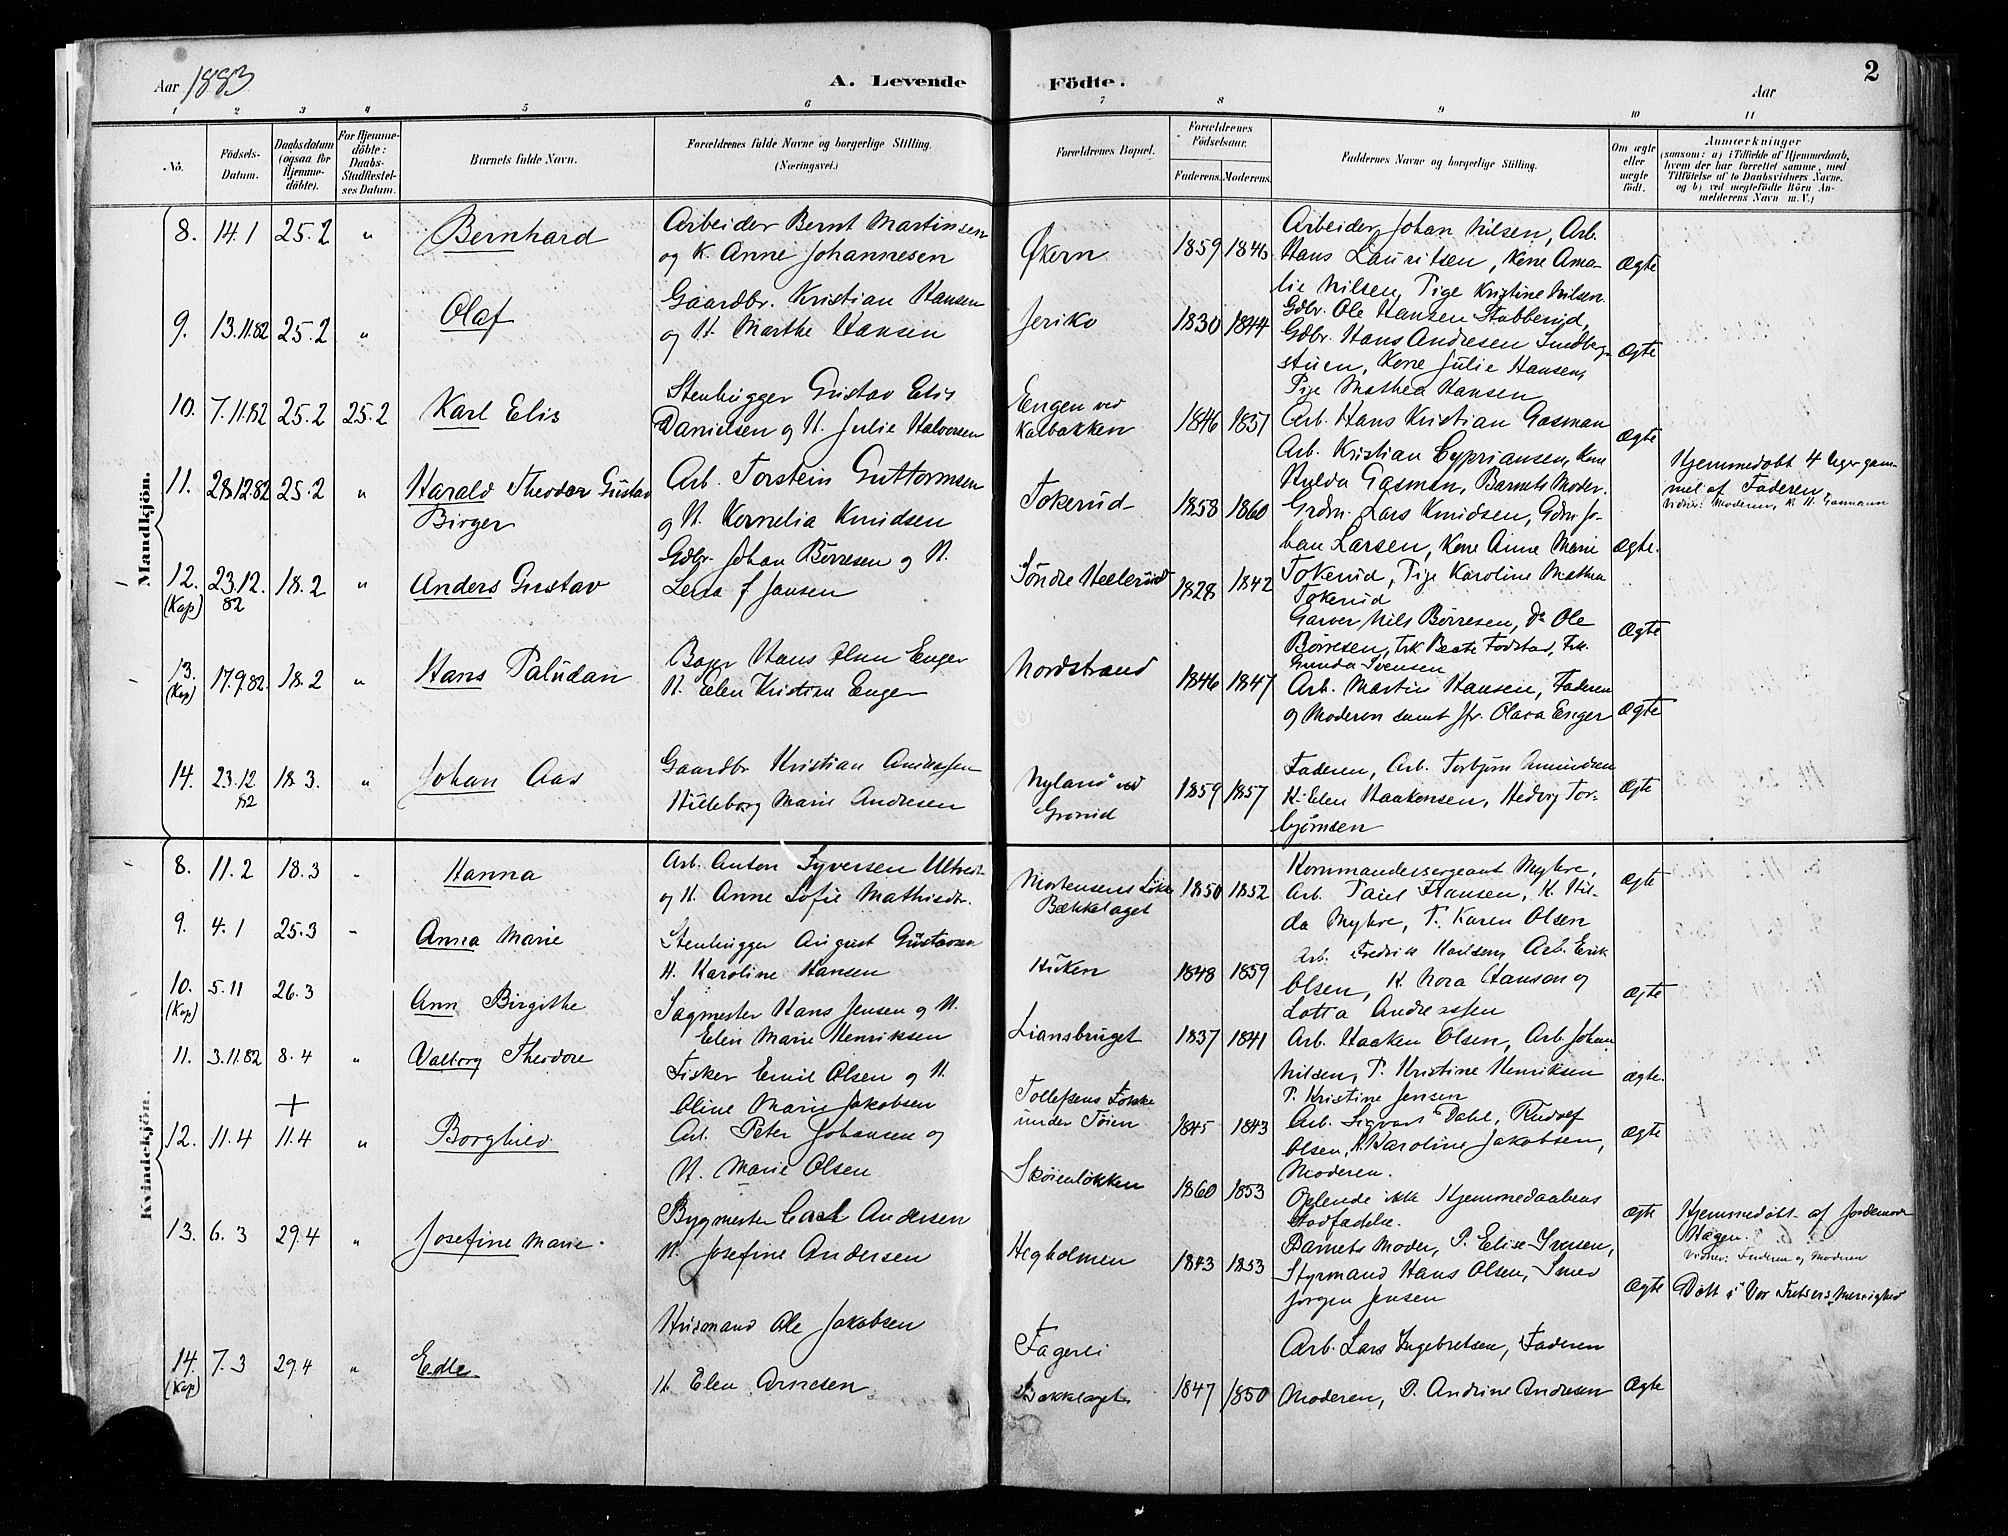 Aar 1883
A. Levende Födte.
Aar
2
1 2 3 4 5 6 7 8 9 10 11
No.
Födsels-Datum.
Daabsdatum (ogsaa for Hjemmedöbte).
For Hjemmedöbte: Daabs-Stadfæstelses Datum.
Barnets fulde Navn.
Forældrenes fulde Navne og borgerlige Stilling. (Næringsvei.)
Forældrenes Bopæl.
Forældrenes Födselsaar.
Faderens. Moderens.
Faddernes Navne og borgerlige Stilling.
Om ægte eller uægte födt.
Anmærkninger
(saasom: a) i Tilfælde af Hjemmedaab,
hvem der har forrettet samme, med
Tilföielse af to Daabsvidners Navne.
og b) ved uægtefödte Börn An-
melderens Navn m. V.)
Mandkjön.
8. 14.1 25.2 " Bernhard
Arbeider Bernt Martinsen
og K. Anne Johannesen
Økern 1859 1846
Arbeider Johan Nilsen, Arb.
Hans Lauritsen, Kone Ama-
lie Nilsen, Pige Kristine Nilsen.
Ægte
9. 13.11.82 25.2 " Olaf
Gaardbr. Kristian Hansen
og H. Marthe Hansen
Jeriko 1830 1844
Gdbr. Ole Hansen Stubberud,
Gdbr. Hans Andresen
stuen, Kone Julie Hansen,
Pige Mathea Hansen
Ægte
10. 7.11.82 25.2 25.2 Karl Elis
Stenhugger Gustav Elis
Danielsen og H. Julie Halvorsen
Engen ved
Kalbakken 1846 1851
Arb. Hans Kristian Gasman
Arb. Kristian Cypriansen, Kone
Hulda Gasman, Barnets Moder.
Ægte
Hjemmedøbt 4 Uger gam-
mel af Faderen
Vidner: Moderen, K. H. Gasmann
11. 28.12.82 25.2 " Harald Theodor Gustav
Birger
Arb. Torstein Guttormsen
og H. Kornelia Knudsen
Tokerud 1858 1860
Grdm. Lars Knudsen, Gdm. Jo-
han Larsen, Kone Anne Marie
Tokerud, Pige Karoline Mathea
Tokerud
Ægte.
12. (Kap) 23.12.82 18.2 " Anders Gustav
Gdbr. Johan Børresen og H.
Lena f Jansen
Søndre 1828 1842
Garver Nils Børresen, Do Ole
Børresen, Frk Beate Fodstad, Frk.
Gunda Svensen
Ægte
13. (Kap) 17.9.82 18.2 " Hans Paludan
Hans Olsen Enger
H. Elen Kristine Enger
Nordstrand 1846 1847
Arb. Martin Hansen, Faderen
og Moderen samt Jfr. Olava Enger
Ægte
14. 23.12 82 18.3. " Johan Aas
Gaardbr Kristian Andresen
Hilleborg Marie Andresen
Nyland ved
Grorud 1859 1857
Faderen, Arb. Torbjørn Amundsen
K. Elen Haakensen, Hedvig Tor-
bjørnsen
Ægte
Kvindekjön.
8. 11.2 18.3 " Hanna
Arb. Anton Syversen
og H. Anne Sofie Mathisdtr.
Mortensens Løkke
Bækkelaget 1850 1852
Kommandersergeant Myhre,
Arb. Paul Hansen, K. Hil-
da Myhre, P. Karen Olsen
Ægte
9. 4.1 25.3 " Anna Marie
Stenhugger August Gustavsen
H. Karoline Hansen
1848 1859
Arb. Fredrik Karlsen, Arb. Erik
Olsen, K. Nora Hanson og
Lotta Anderssen
Ægte
10. (Kap) 5.11 26.3 Ann Birgithe
Sagmester Hans Jensen og H.
Elen Marie Henriksen
Liansbruget 1837 1841
Arb. Haaken Olsen, Arb. Johan
Nilsen, P. Kristine Henriksen
P. Kristine Jensen
Ægte.
11. 3.11.82 8.4 " Valborg Theodore
Fisker Emil Olsen og H.
Oline Marie Jakobsen
Tollefsens Løkke
under Tøien 1845 1843
Arb. Sigvart Dahl, Rudolf
Olsen, K. Karoline Jakobsen,
Moderen.
Ægte
12. 11.4 + 11.4 " Borghild
Arb. Peter Johansen og
H. Marie Olsen
Skøienløkken 1860 1853
Oplevede ikke Hjemmedaabens
Stadfæstelse.
Ægte
Hjemmedøbt af Jordemoder
Hagen.
Vidner: Faderen og Moderen
13. 6.3 29.4 " Josefine Marie
Bygmester Carl Andersen
H. Josefine Andersen
Hegholmen 1843 1853
Barnets Moder, P. Elise Iversen,
Styrmand Hans Olsen, Smed
Jørgen Jensen
Ægte
Døbt i Vor Frelsers Menighed
14. (Kap) 7.3 29.4 " Edle
Husmand Ole Jakobsen
H. Elen Arnesen
Fagerli
Bækkelaget 1847 1850
Arb. Lars Ingebretsen, Faderen
Moderen, P. Andrine Andresen
Ægte